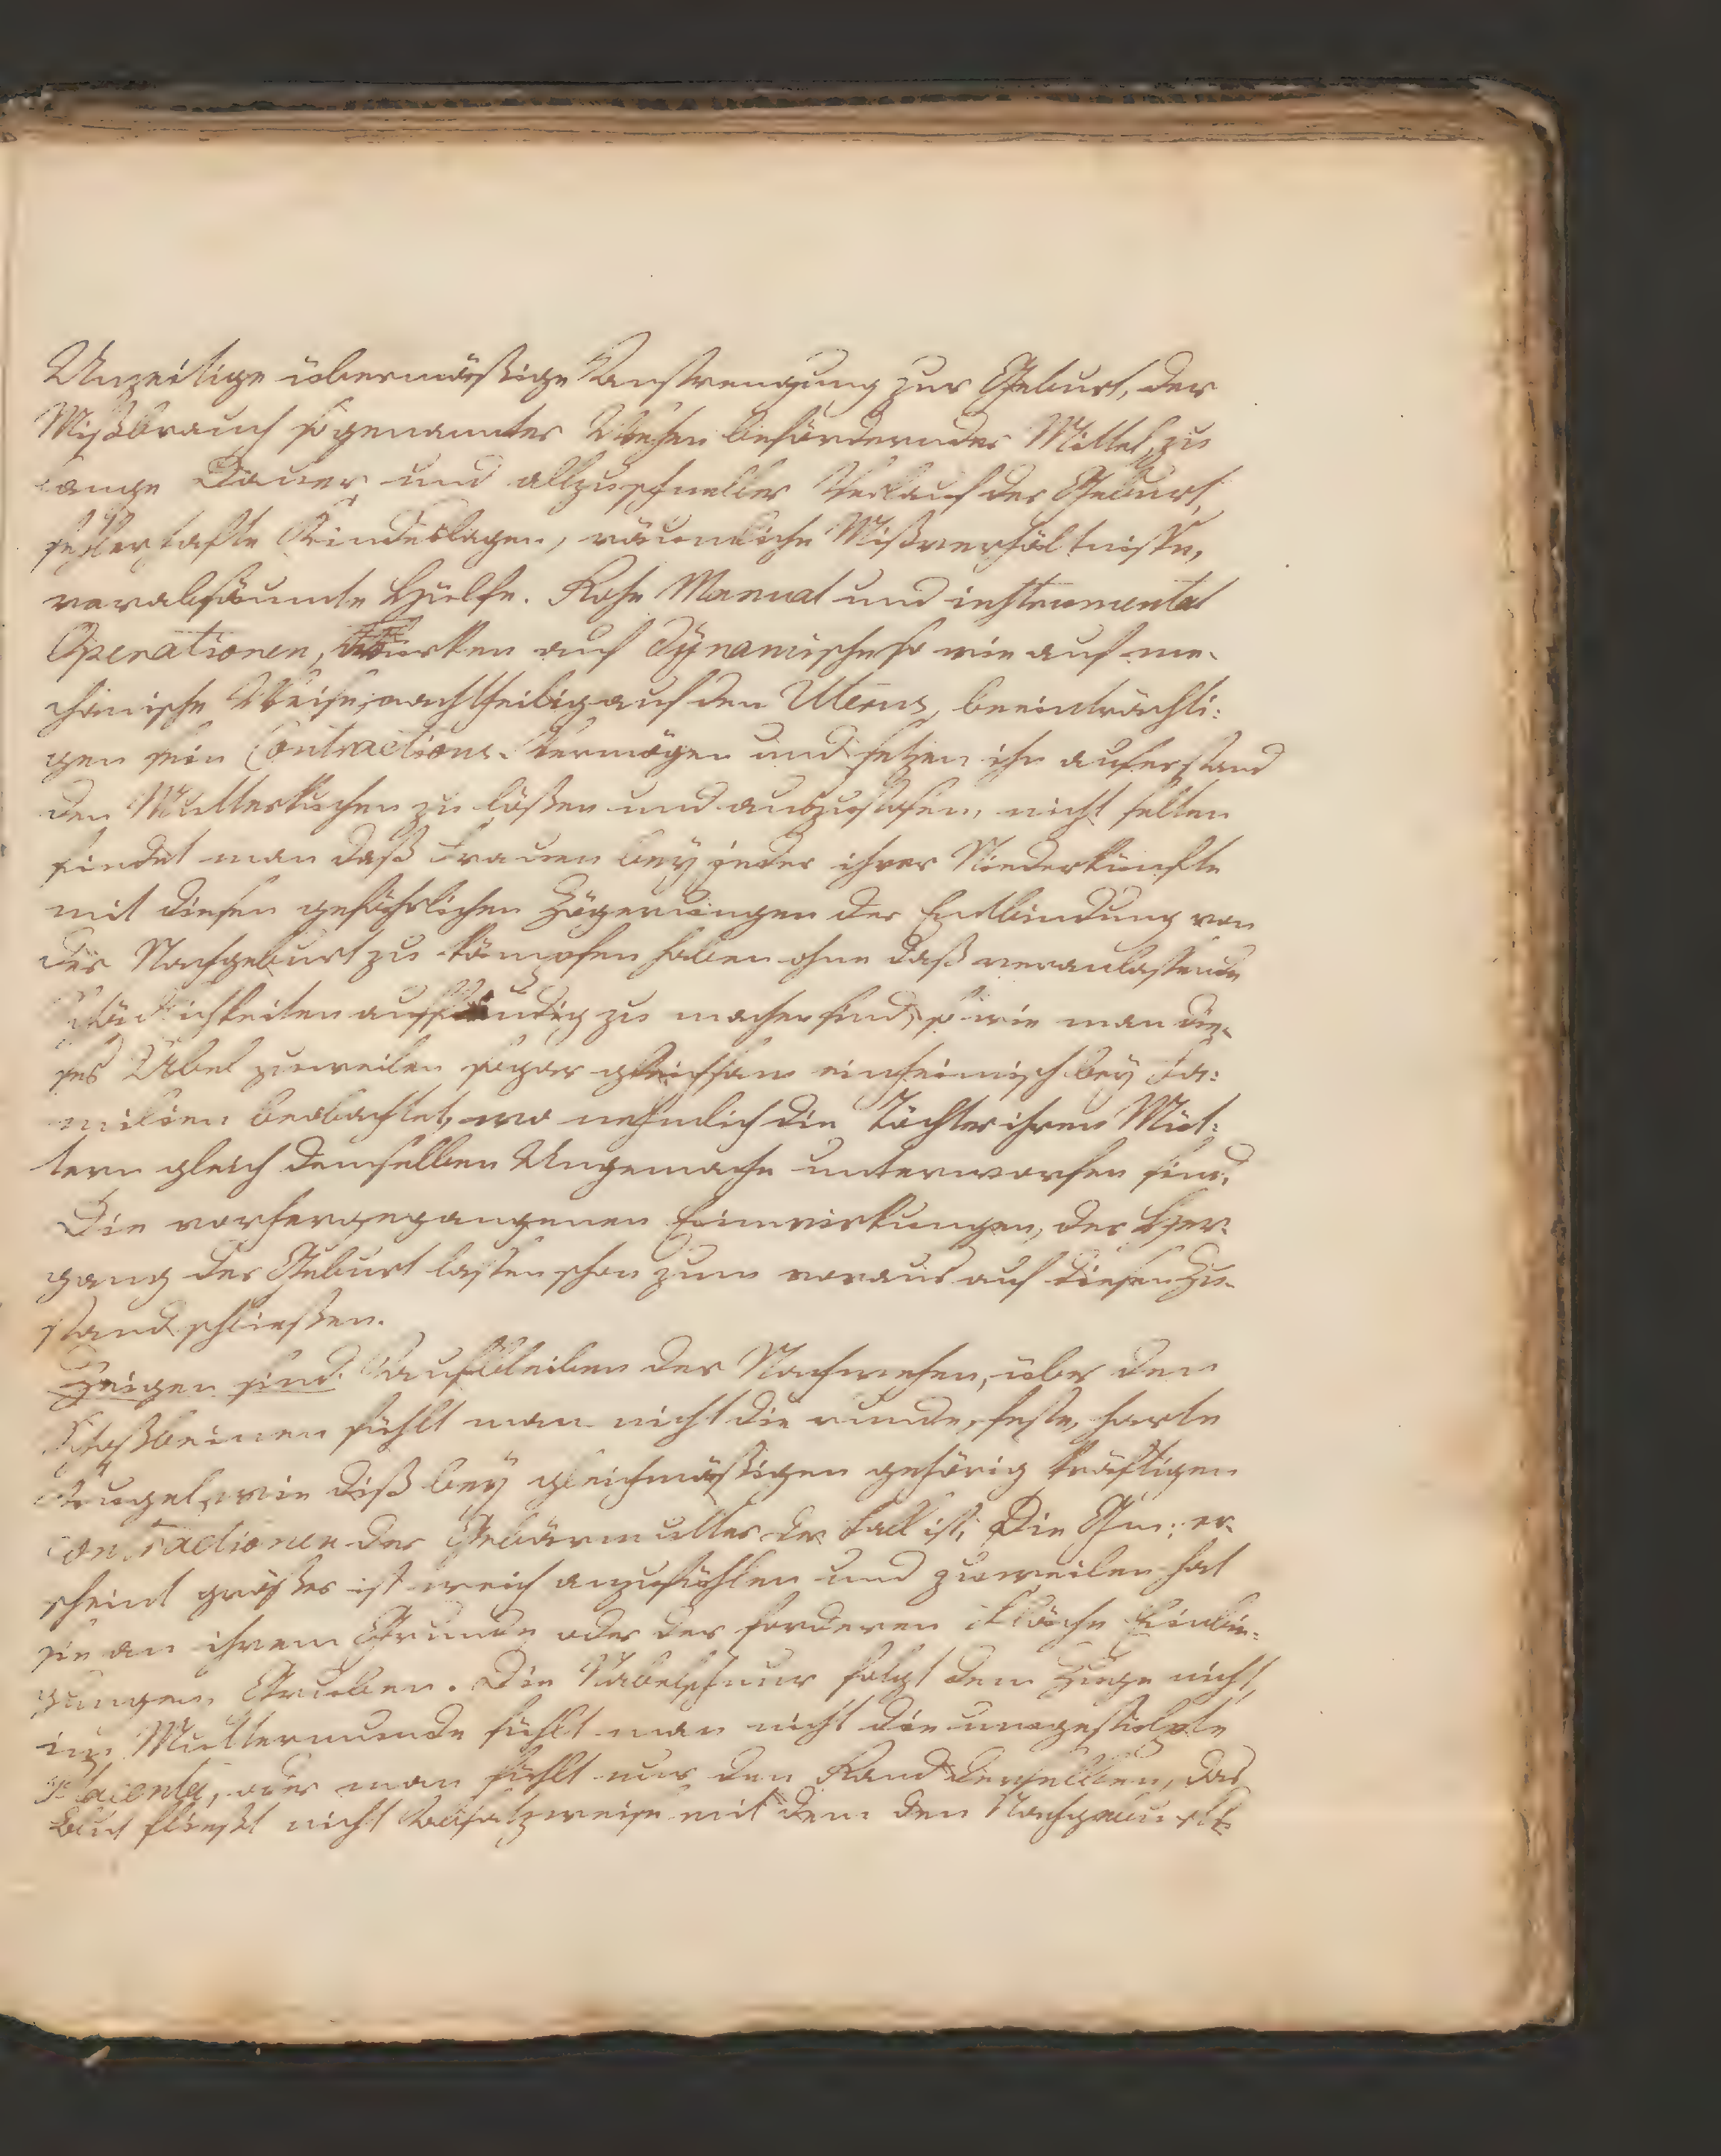 Unzeitige übermäßige Anstrengung zur Geburt, der
Mißbrauch sogenannter Wehen befördernder Mittel, zu
lange Dauer und allzuschneller Verlauf der Geburt,
fehlerhafte Kindeslagen, räumliche Mißverhältniße,
verabsäumte Hülfe. Rohe Manual und instrumental
Operationen, wirken auf dÿnamische so wie auf me-
chanische Weise nachtheilig auf den Uterus, beeinträchti:
gen sein Contractions-Vermögen und setzen ihn auserstand
den Mutterkuchen zu lößen und auszustoßen, nicht selten
findet man daß Frauen beÿ jeder ihrer Niederkünfte
mit diesen gefährlichen Zögerungen der Entbindung von
der Nachgeburt zu kämpfen haben ohne daß veranlaßende
Schädlichkeiten ausfindig zu machen sind, so wie man die-
ses Übel zuweilen sogar gleichsam einheimisch beÿ Fa:
milien beobachtet, wo nehmlich die Töchter ihren Müt:
tern gleich demselben Ungemache unterworfen sind.
Die vorhergegangenen Einwirkungen, der Her-
gang der Geburt laßen schon zum voraus auf diesen Zu-
stand schließen.
Zeigen sind. Ausbleiben der Nachwehen, über den
Schoßbeinen fühlt man nicht die runde, feste, harte
Kugel, wie diß beÿ gleichmäßigen gehörig kräftigen
Contractionen der Gebärmutter der Fall ist. Die Gm: er-
scheint größer ist weich anzufühlen und zuweilen hat
sie an ihrem Grunde oder der forderen Fläche Einbie-
gungen, Gruben. Die Nabelschnur folgt dem Zuge nicht,
im Muttermunde fühlt man nicht die umgestülpte
Placenta, oder man fühlt nur den Rand derselben, das
Blut fließt nicht Absatzweise mit dem den Nachgeburts-